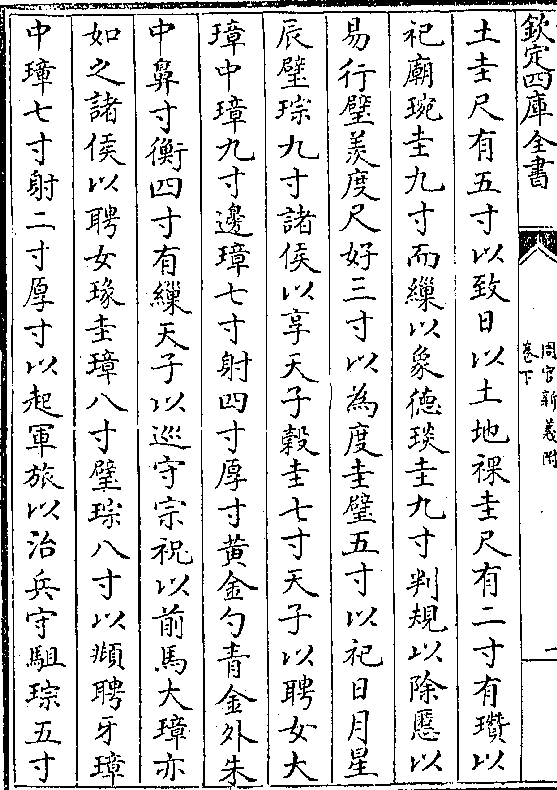 欽定四庫全書
周官新義附
卷下
一
土圭尺有五寸以致日以土地祼圭尺有二寸有瓚以
祀廟琬圭九寸而繅以象德琰圭九寸判規以除慝以
易行璧羨度尺好三寸以為度圭璧五寸以祀日月星
辰璧琮九寸諸侯以享天子榖圭七寸天子以聘女大
璋中璋九寸邊璋七寸射四寸厚寸黃金勺青金外朱
中鼻寸衡四寸有繅天子以巡守宗祝以前馬大璋亦
如之諸侯以聘女瑑圭璋八寸璧琮八寸以頫聘牙璋
中璋七寸射二寸厚寸以起軍旅以治兵守駔琮五寸